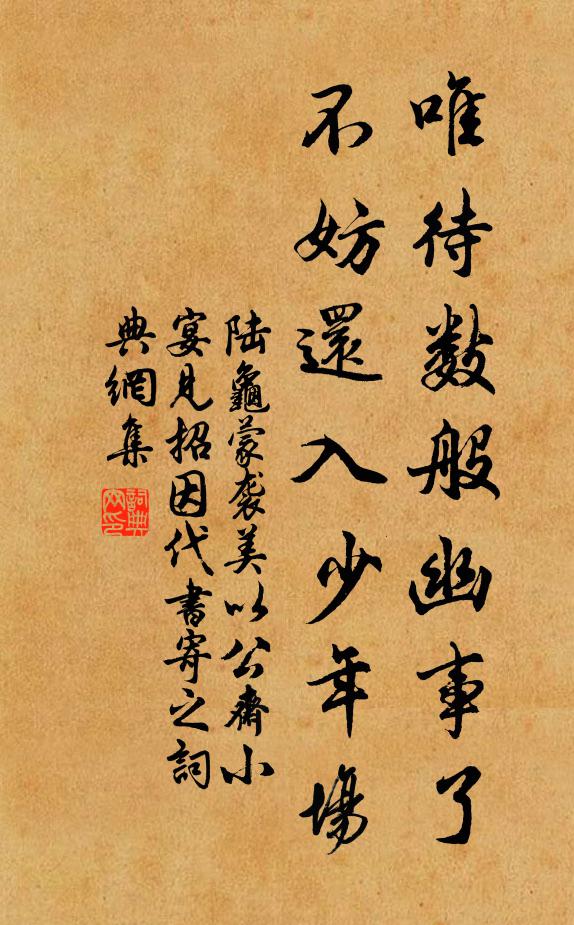 唯待数般幽事了
不妨還入少年場
陆龜蒙袭美以公齋小
宴見招因代書寄之詞
典網集
詞典網印